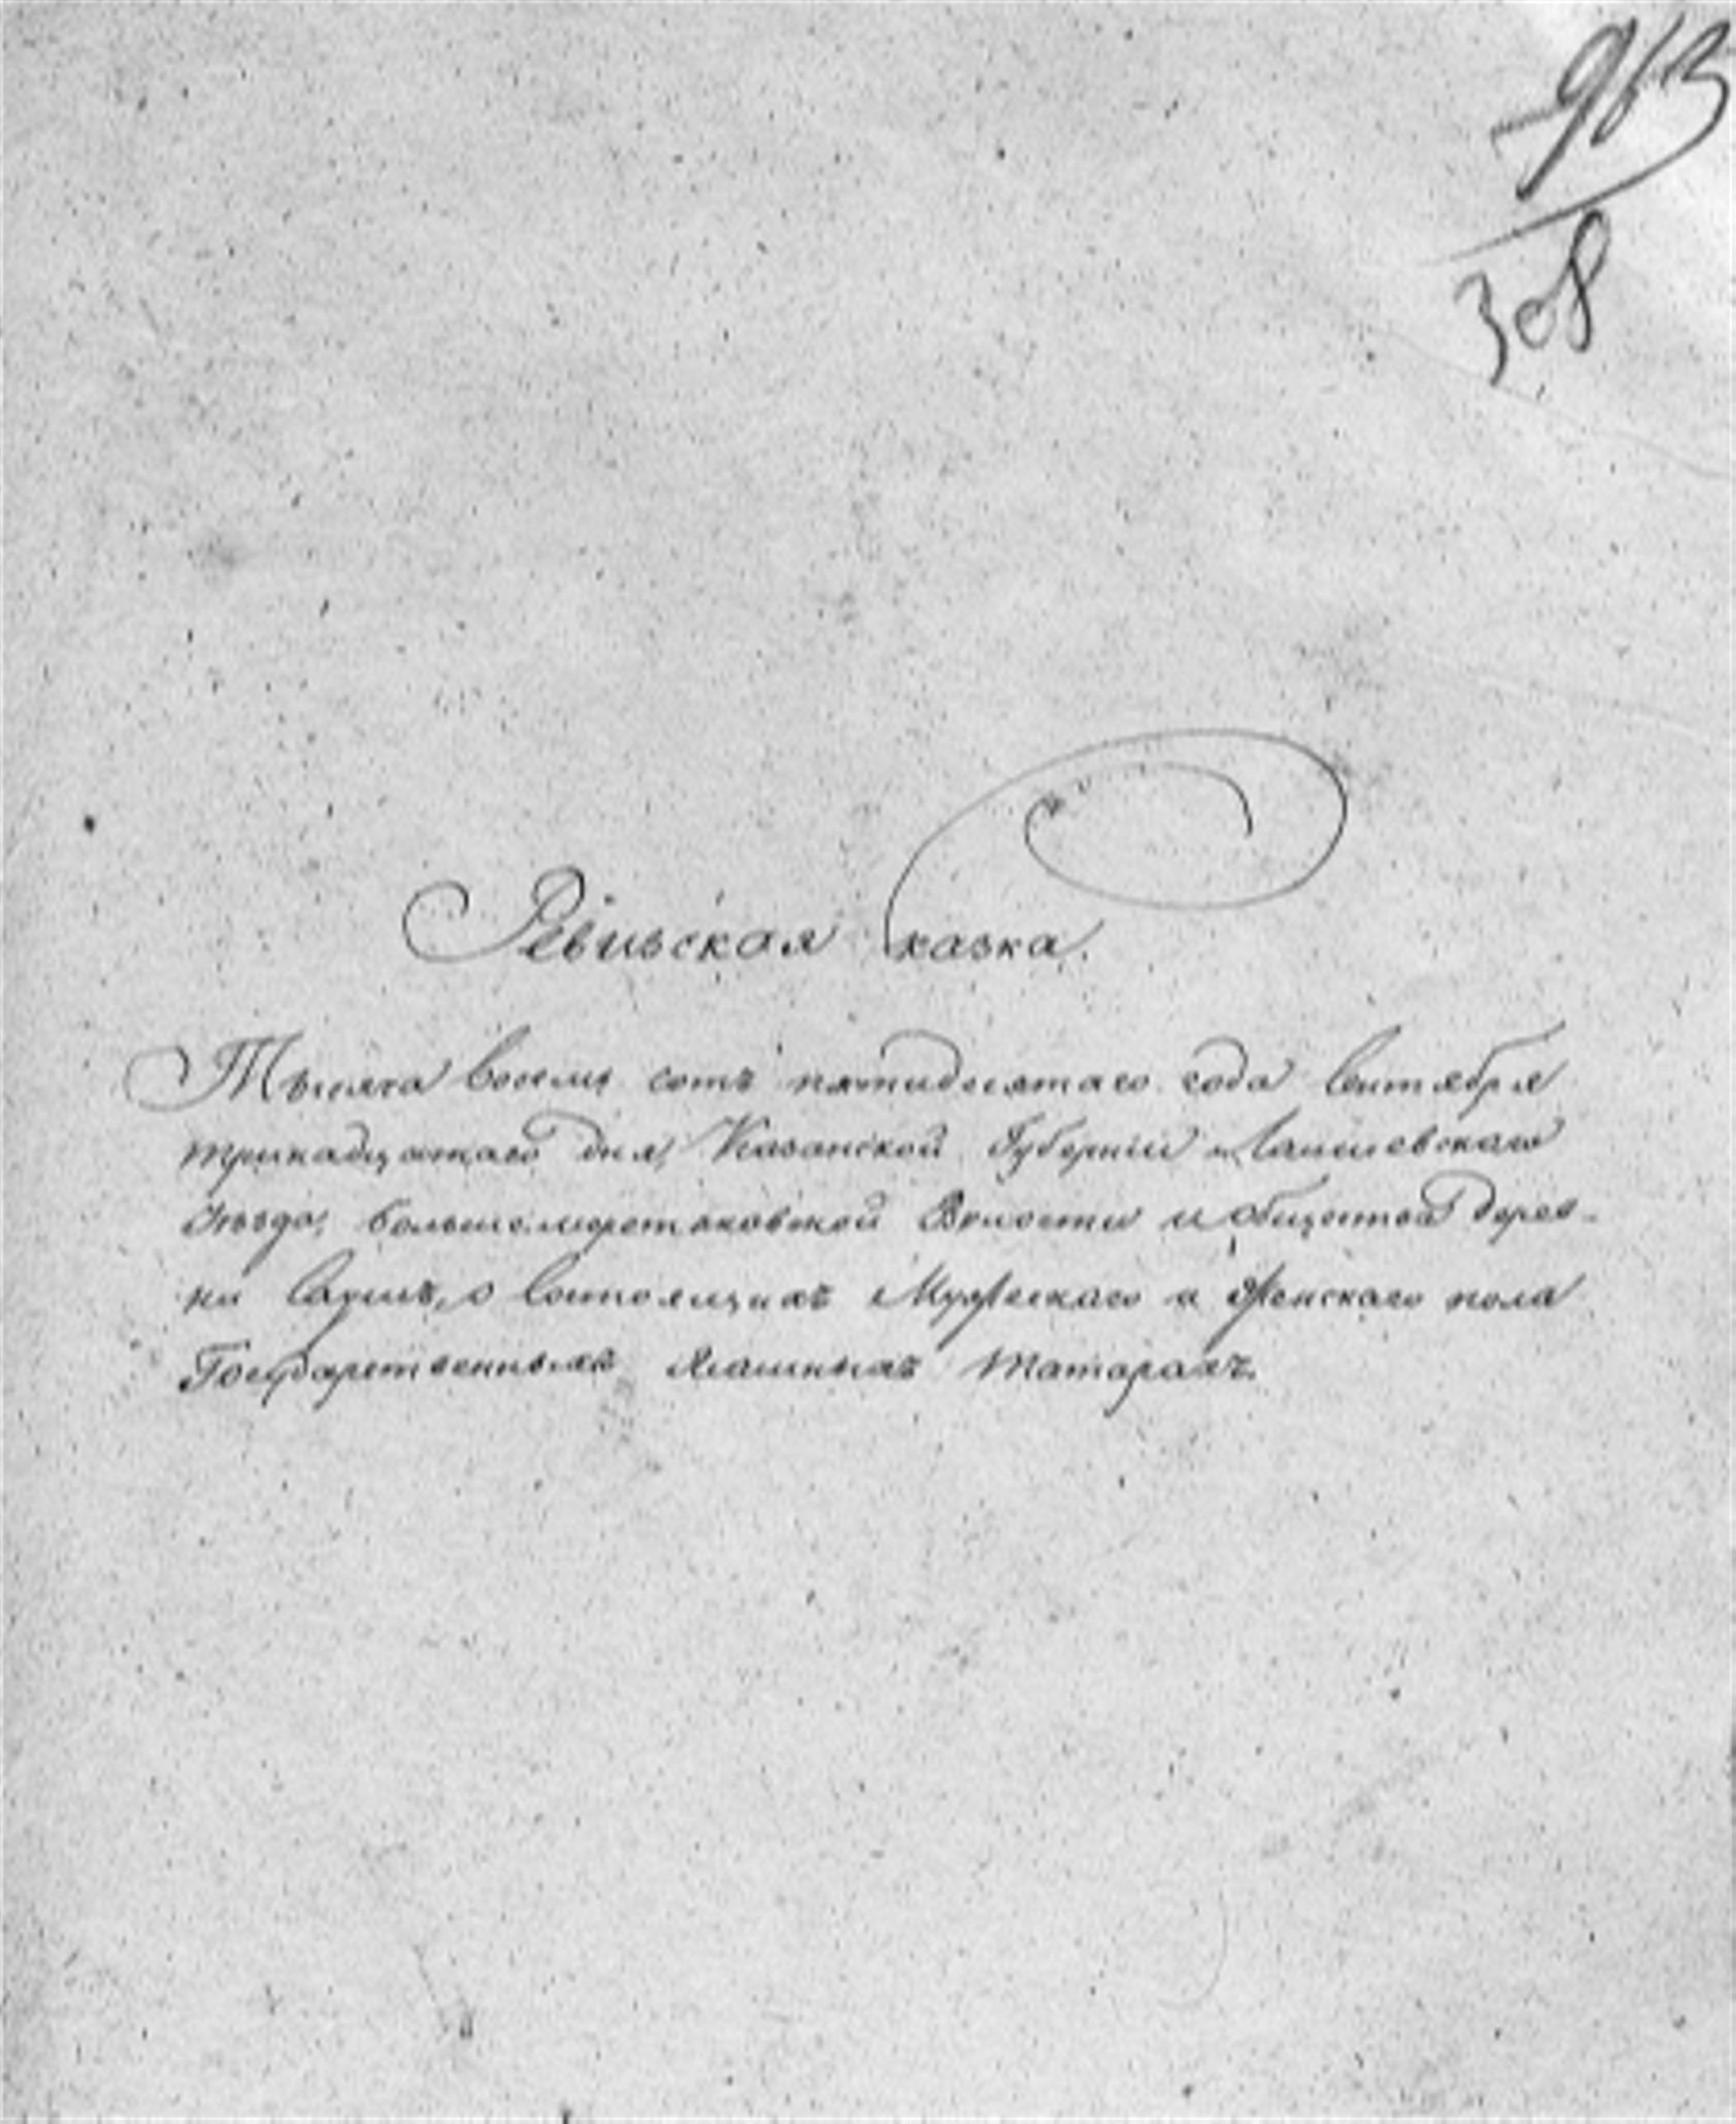 963
308
Ревизская сказка.
Тысяча восемь сотъ пятидесятаго года Сентября
тринадцатаго дня, Казанской Губерніи Лаишевскаго
уѣзда, большемеретяковской Волости и общества дерев-
ни о состоящихъ Мужескаго и Женскаго пола
Государственныхъ Ясашныхъ Татарахъ.